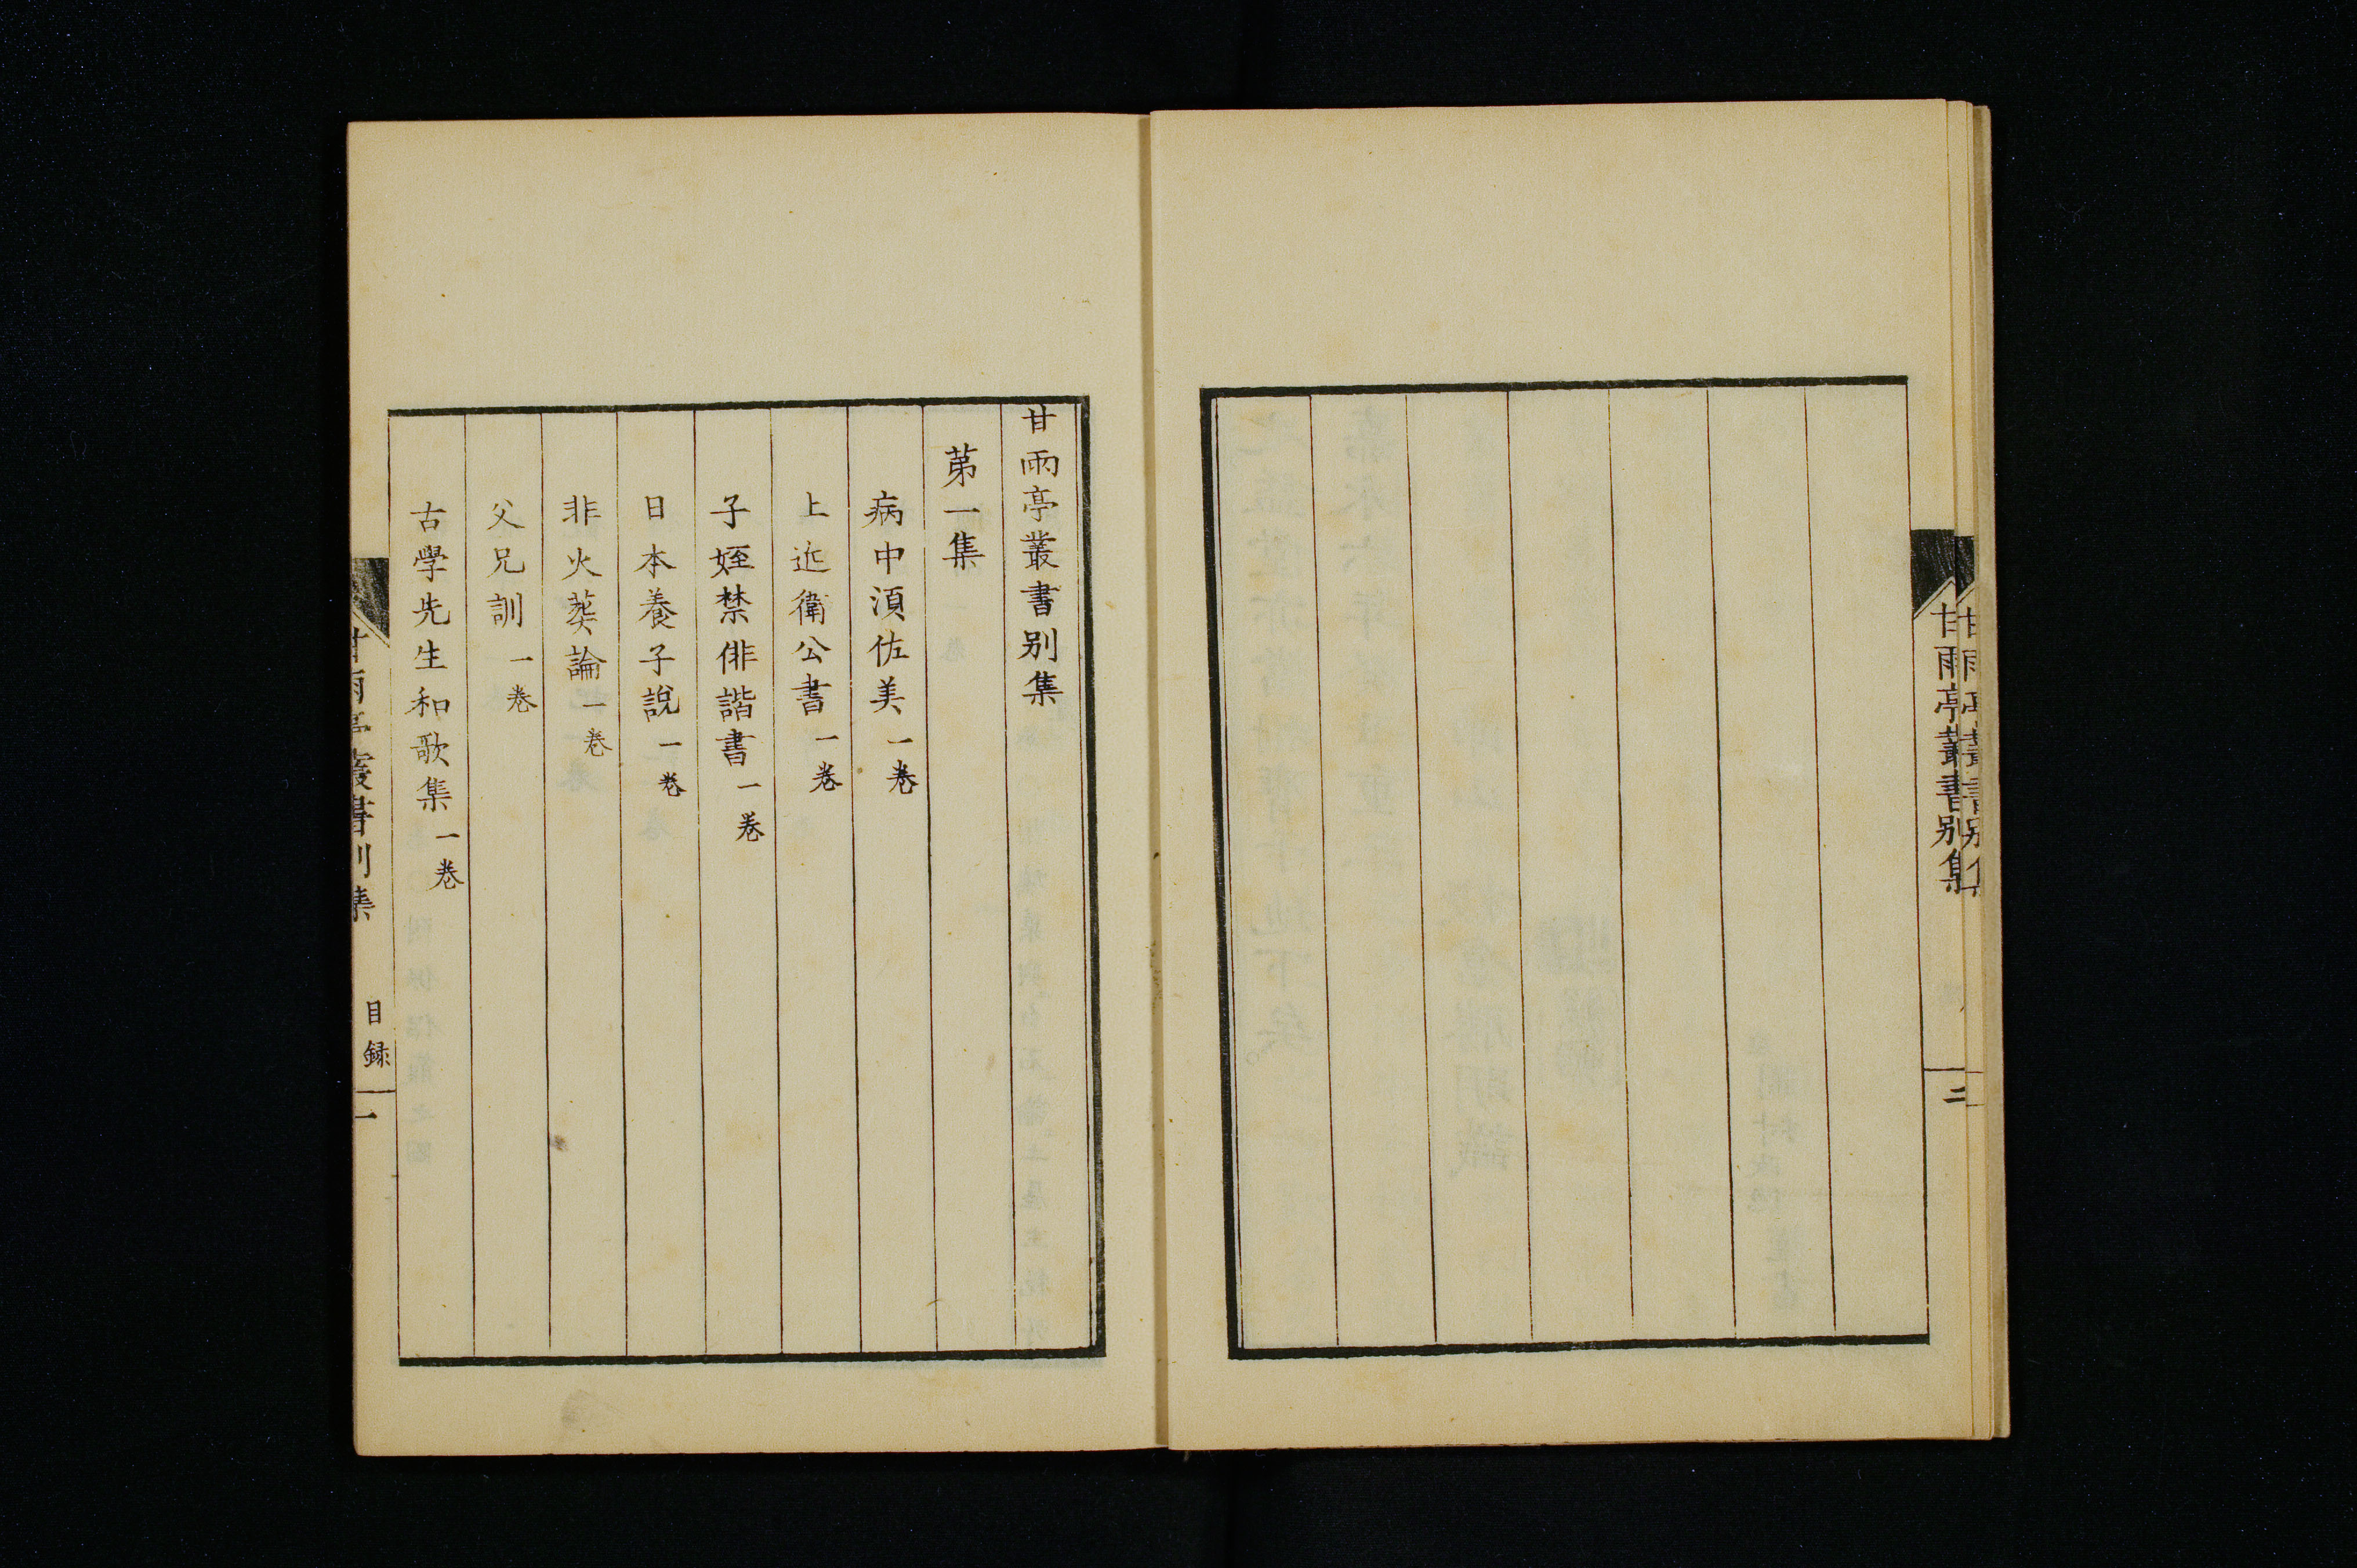 甘雨亭叢書别集
二
甘雨亭叢書别集
第一集
病中湏佐美 一卷
上近衛公書 一卷
子姪禁俳諧書 一卷
日本養子說 一卷
非火葬論 一卷
父兄訓 一卷
古學先生和歌集 一卷
甘雨亭叢書別集
目録
一